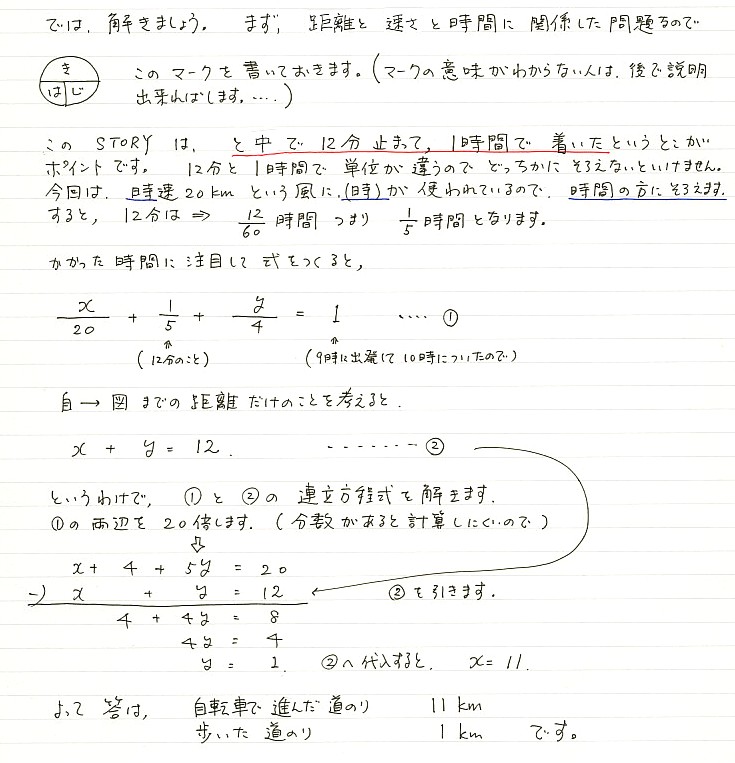 では、解きましょう。 まず、距離と速さと時間に関係した問題なので
き
は じ
このマークを書いておきます。(マークの意味がわからない人は、後で説明
出来ればします。‥‥)
この STORY は、と中で12分止まって、1時間で着いたというとこが
ポイントです。 12分と1時間で単位が違うのでどっちかにそろえないといけません。
今回は、時速20kmという風に、(時)が使われているので、時間の方にそろえます。
すると、12分は ⇒ 12/60 時間 つまり 1/5 時間となります。
かかった時間に注目して式をつくると、
x/20 + 1/5 + y/4 = 1 ‥‥ ①
(12分のこと) (9時に出発して10時についたので)
自→図までの距離だけのことを考えると.
x + y = 12. ------- ②
というわけで、①と②の連立方程式を解きます.
①の両辺を20倍します。(分数があると計算しにくいので)
x + 4 + 5y = 20
-) x + y = 12 ②を引きます.
4 + 4y = 8
4y = 4
y = 1. ②へ代入すると、 x = 11.
よって答は、 自転車で進んだ道のり 11 km
歩いた道のり 1 km です。